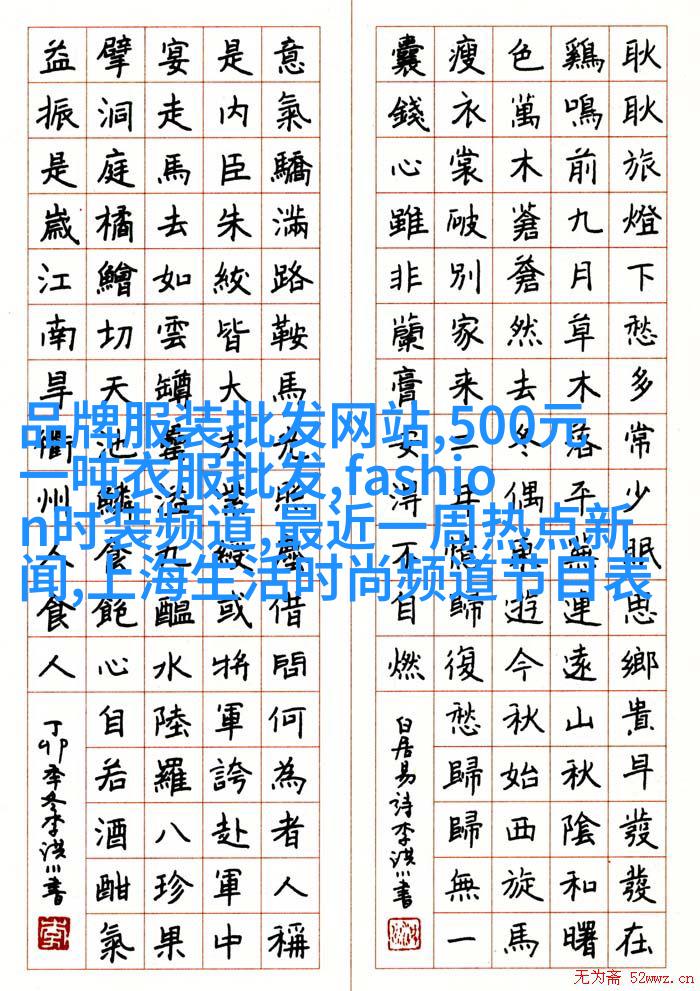 耿耿旅燈下愁多常少眠思鄉貴早發發在
鷄鳴前九月草木落平蕪連遠山秋陰和曙
色萬木蒼蒼然去冬偶東遊今秋始西旋馬
瘦衣裳破別家來二年憶歸復愁歸歸無一
囊錢心雖非蘭膏安得不自燃
白居易詩李洪川書
意氣驕滿路鞍馬光照塵借問何為者人稱
是內臣朱紱皆大夫紫綬或將軍誇赴軍中
宴走馬去如雲罇罍溢九醞水陸羅八珍果
擘洞庭橘鱠切天池鱗食飽心自若酒酣氣
益振是歲江南旱衢州人食人
丁卯季冬李洪川書
品牌服装批发网站,500元
一吨衣服批发,fashio
n时装频道,最近一周热点新
闻,上海生活时尚频道节目表
无为斋 52wwz.cn